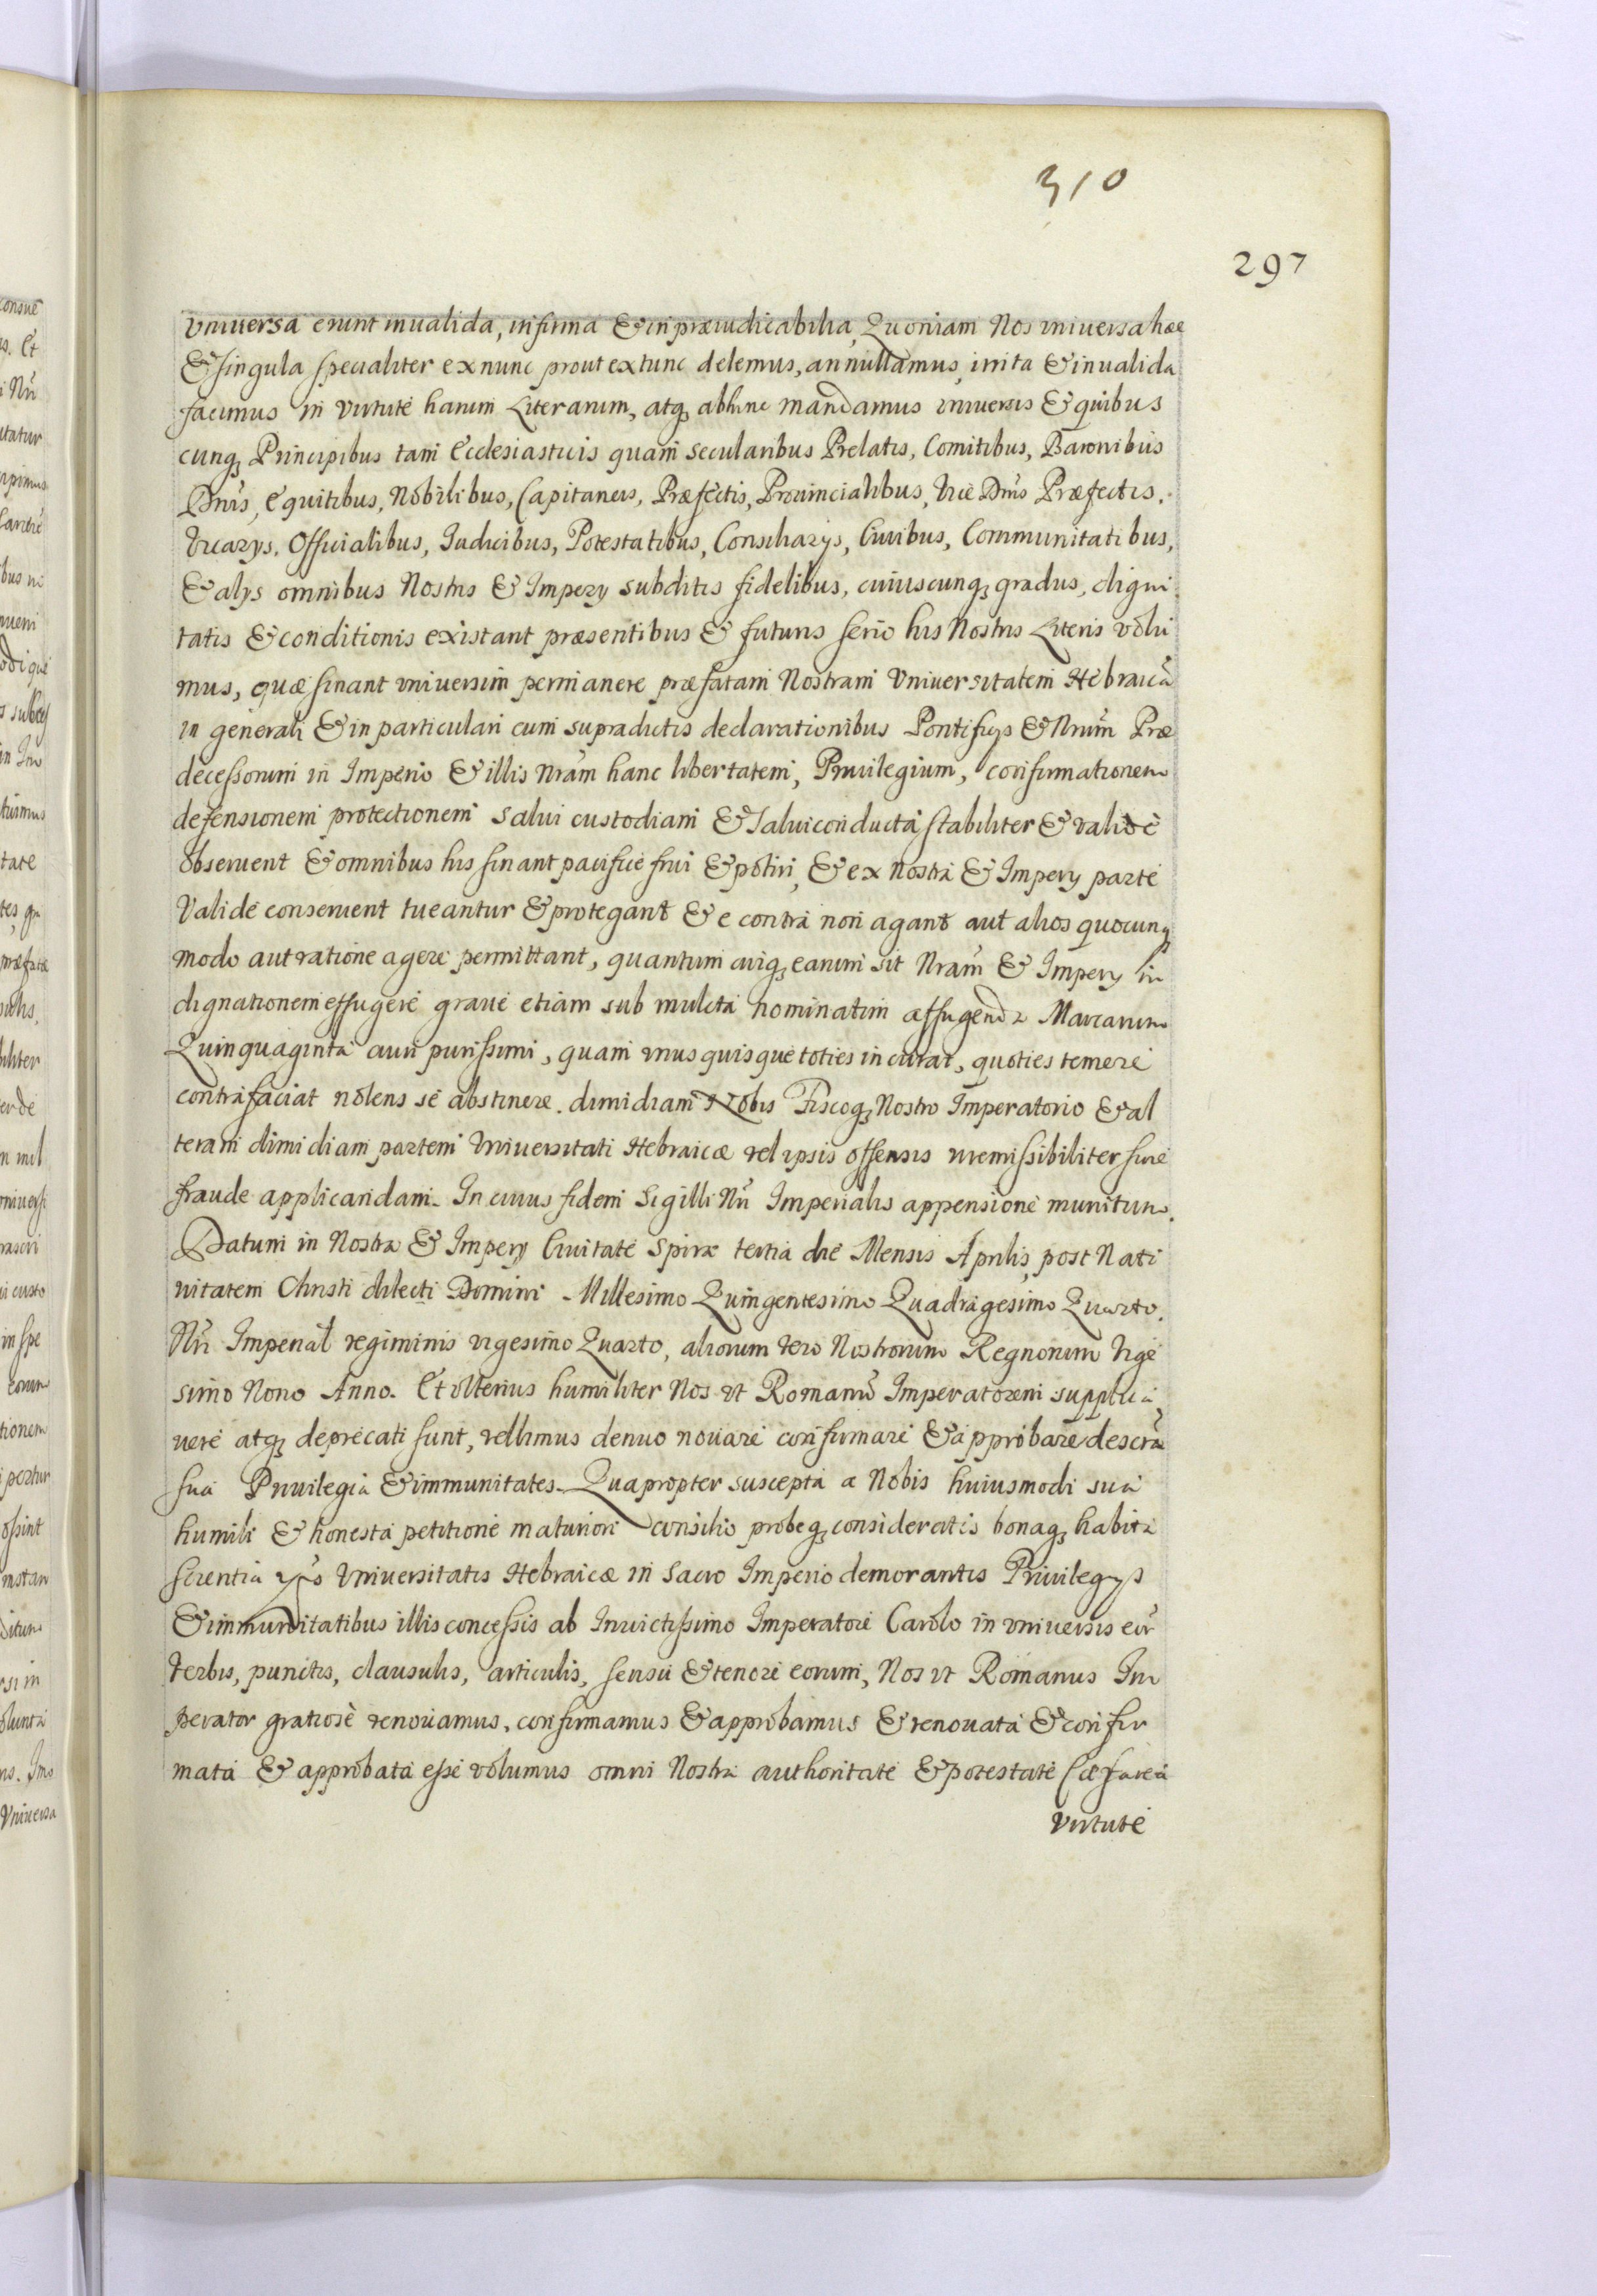 310
297
vniuersa erunt inualida, infirma & inpræiudicabilia, Quoniam Nos vniuersa hæc
& singula specialiter ex nunc prout ex tunc delemus, annullamus, irrita & inualida
facimus in virtute harum Literarum, atq; abhinc mandamus vniuersis & quibus
cunq; Principibus tam Ecclesiasticis quam secularibus Prelatis, Comitibus, Baronibus
Dnis, Equitibus, Nobilibus, Capitaneis, Præfectis, Prouincialibus, Vice Dnis Præfectis.
Vicarys. Officialibus, Iudicibus, Potestatibus, Consiliarys, Ciuibus, Communitatibus,
& alys omnibus Nostris & Impery subditis fidelibus, cuiuscunq; gradus, digni
tatis & conditionis existant præsentibus & futuris serio his Nostris Literis volu
mus, quæ sinant vniuersim permanere præfatam Nostram Vniuersitatem Hebraicã
in generali & in particulari cum supradictis declarationibus Pontificys & Nrum Præ
decessorum in Imperio & illis Nram hanc libertatem, Priuilegium, confirmationem
defensionem protectionem salui custodiam & saluiconducta stabiliter & validè
obseruent & omnibus his sinant pacificè frui & potiri, & ex Nostra & Impery parte
Validè conseruent tueantur & protegant & e contra non agant aut alios quocunq;
modo aut ratione agere permittant, quantum cuiq; earum sit Nram & Impery in
dignationem effugere graue etiam sub mulcta nominatim affugenda Marcarum
Quinquaginta auri purissimi, quam vnusquisque toties incurat, quoties temerè
contrafaciat nolens se abstinere. dimidiam Nobis Fiscoq; Nostro Imperatorio & al
teram dimidiam partem Vniuersitati Hebraicæ vel ipsis offensis irremissibiliter sine
fraude applicandam. In cuius fidem Sigilli Nri Imperialis appensione munitum.
Datum in Nostra & Impery Ciuitate Spiræ tertia die Mensis Aprilis, post Nati
uitatem Christi dilecti Domini Millesimo Quingentesimo Quadragesimo Quarto.
Nri Imperial regiminis vigesimo Quarto, aliorum vero Nostrorum Regnorum Vige
simo Nono Anno. Et vlterius humiliter Nos vt Romanũ Imperatorem supplica
uere atq; deprecati sunt, vellimus denuo nouare confirmare & approbare descrã
sua Priuilegia & immunitates. Quapropter suscepta a Nobis huiusmodi sua
humili & honesta petitione maturiori consilio probeq; consideratis bonaq; habita
scientia Vniuersitatis Hebraicæ in Sacro Imperio demorantis Priuilegys
& immunitatibus illis concessis ab Inuictissimo Imperatore Carolo in vniuersis eor̃
Verbis, punctis, clausulis, articulis, sensu & tenore eorum, Nos vt Romanus Im
perator gratiosè renouamus, confirmamus & approbamus & renouata & confir
mata & approbata esse volumus omni Nostra authoritate & potestate Cæsarea
Virtute